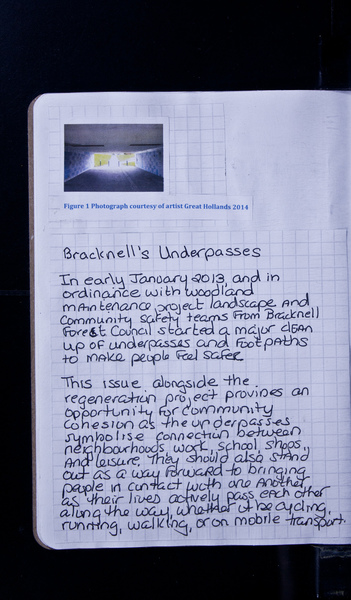 Figure 1 Photograph courtesy of artist Great Hollands 2014
Bracknell's Underpasses
In early January 2013, and in
ordinance with woodland
maintenance project landscape and
community safety teams from Bracknell
Forest Council started a major clean
up of underpasses and footpaths
to make people feel safer
This issue alongside the
regeneration project provides an
opportunity for community
cohesion as the underpasses
symbolise connection between
neighbourhoods, work, school, shops,
and leisure. They should also stand
out as a way forward to bringing
people in contact with one another
as their lives actively pass each other
along the way, whether it be cycling,
running, walking, or on mobile transport.